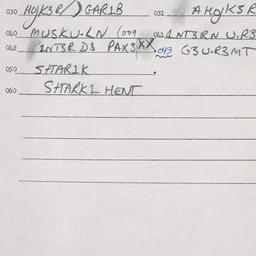 030 HOJK3R/) GAR1B 031 A HOJK3R
040 MUSKU.LN (009 041 1NT3RN U.R3
042 1NT3R DS PAX3XX. 043 G3U.R3MT
050 SHTAR1K
060 SHTARK1 HENT